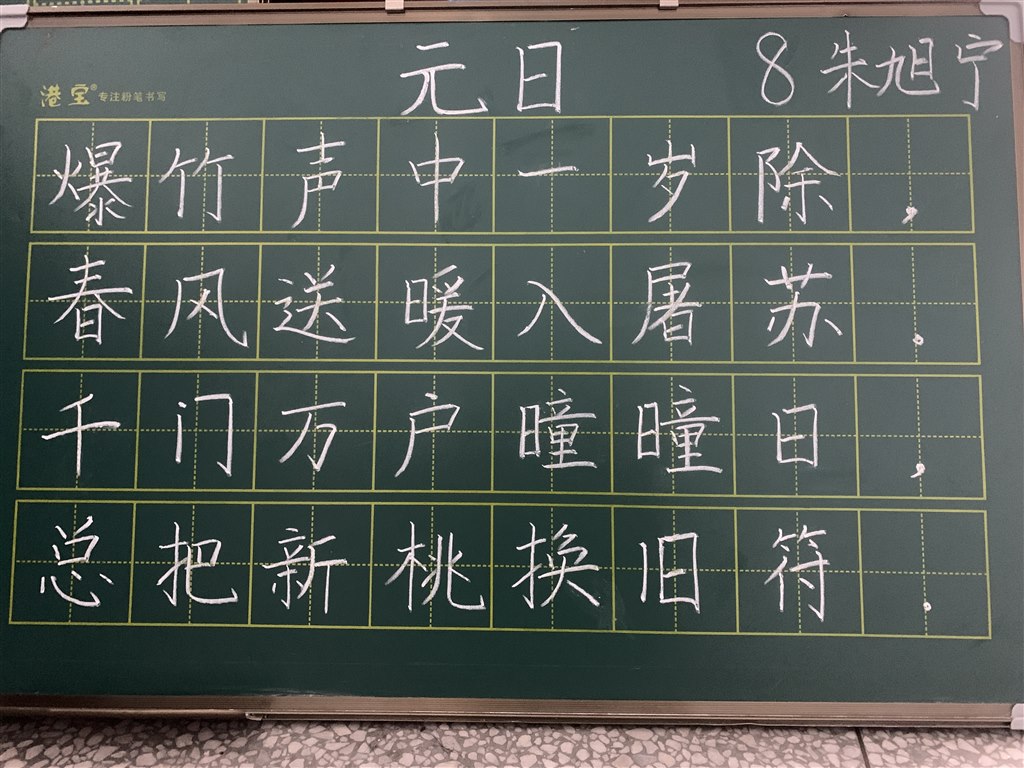 元日 8 朱旭宁
港宝® 专注粉笔书写
爆竹声中一岁除，
春风送暖入屠苏。
千门万户曈曈日，
总把新桃换旧符。